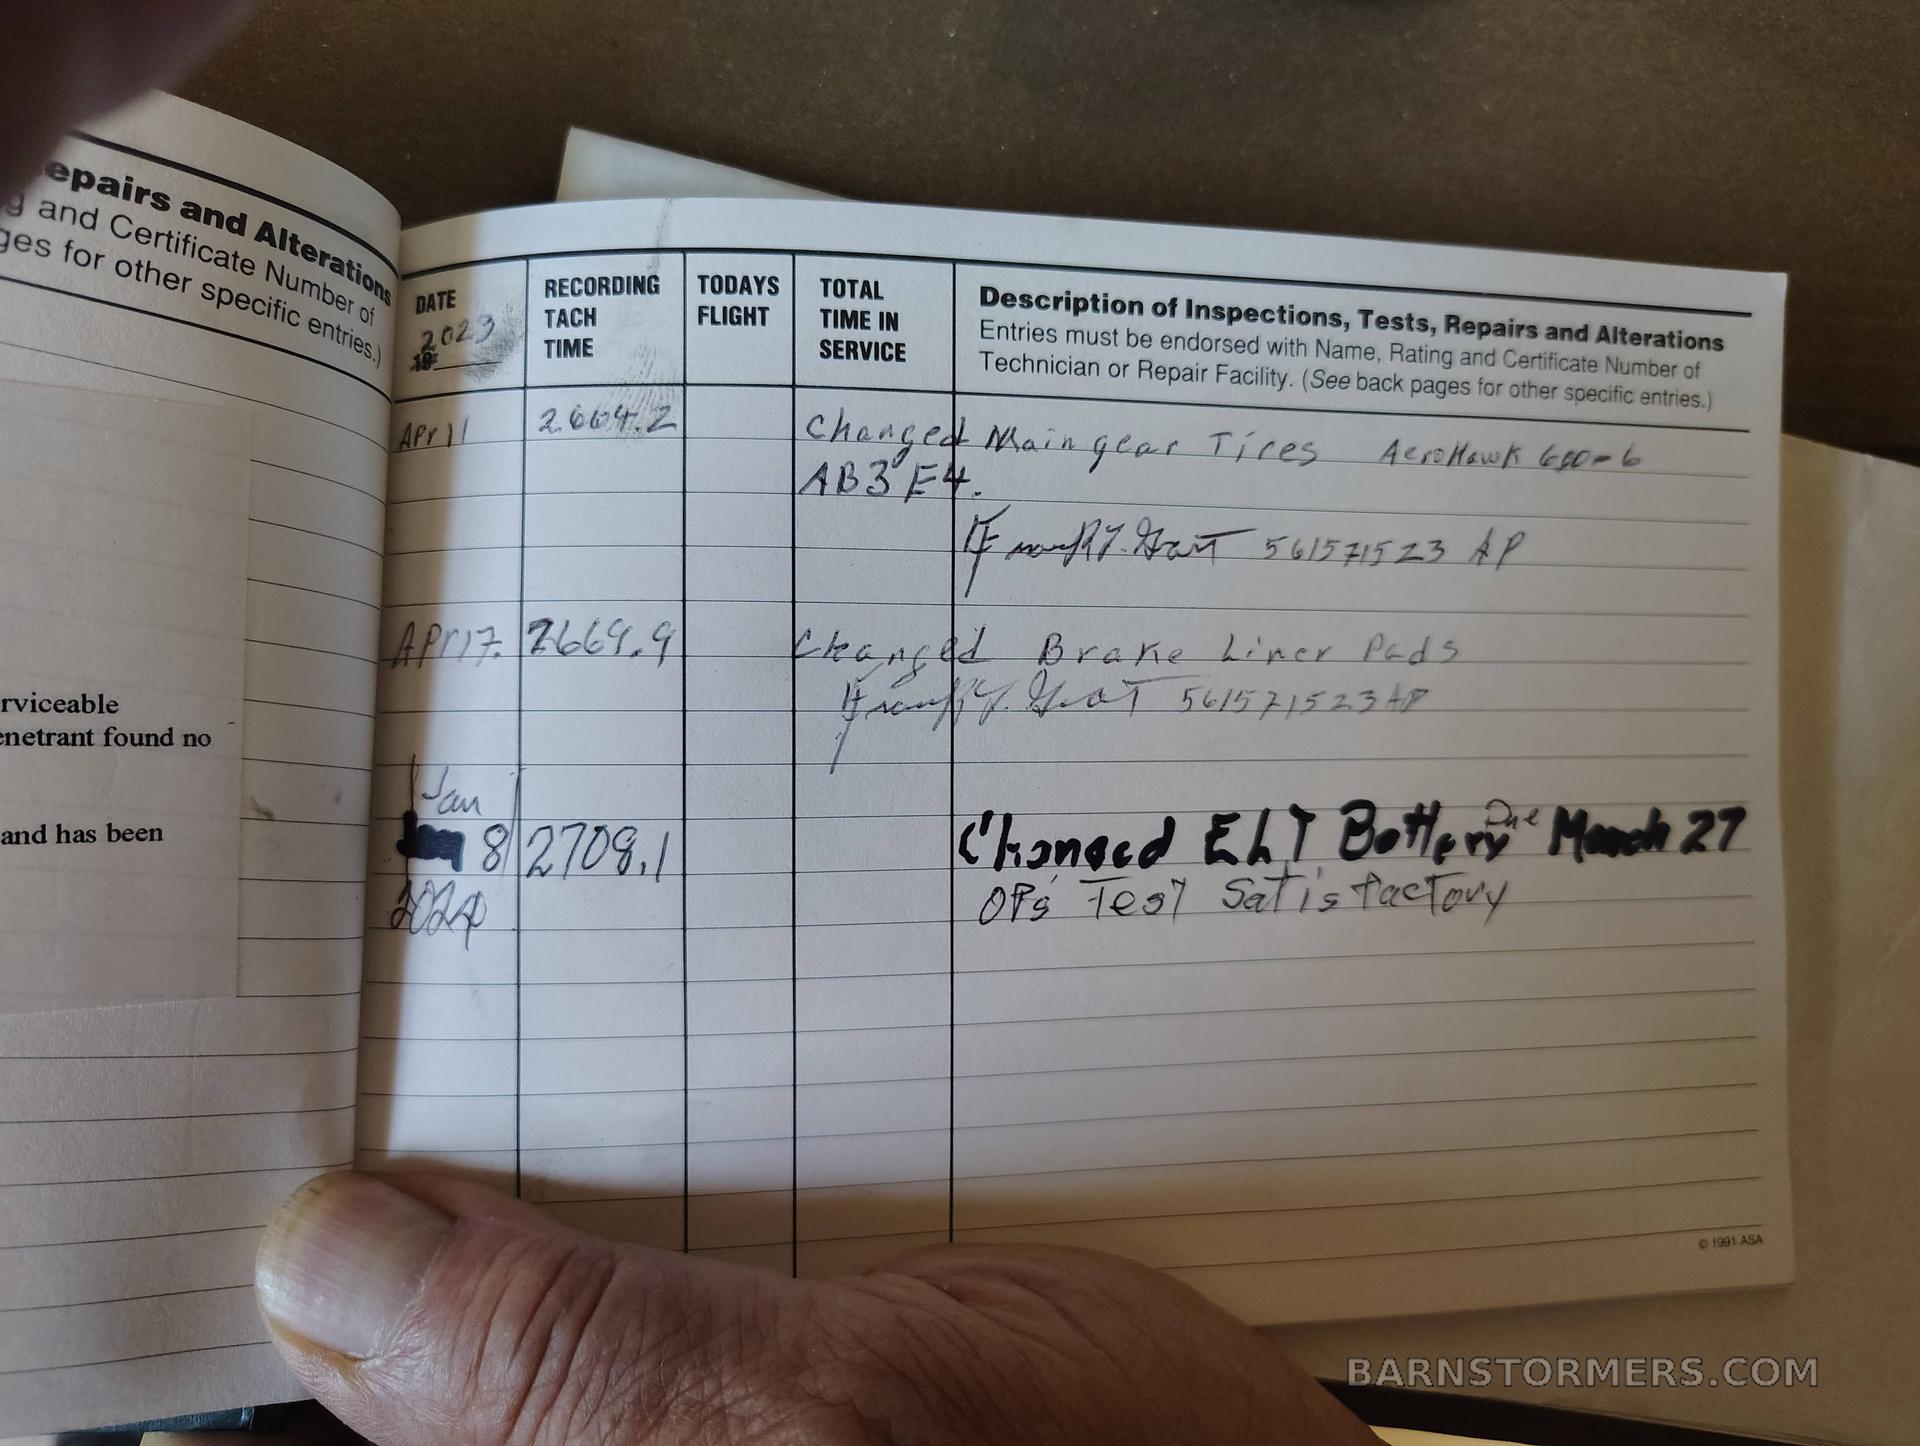 epairs and Alterations
g and Certificate Number of
ges for other specific entries.)
rviceable
enetrant found no
and has been
DATE
2023
19
RECORDING
TACH
TIME
TODAYS
FLIGHT
TOTAL
TIME IN
SERVICE
Description of Inspections, Tests, Repairs and Alterations
Entries must be endorsed with Name, Rating and Certificate Number of
Technician or Repair Facility. (See back pages for other specific entries.)
2664.2 Changed Main gear Tires AeroHawk 600-6
AB3E4.
561571523 AP
Apr 17. 2669.9 Changed Brake Liner Pads
561571523 AP
Jan
8 2708.1 Changed ELT Battery Due March 27
2024 OPs Test Satisfactory
© 1991 ASA
BARNSTORMERS.COM